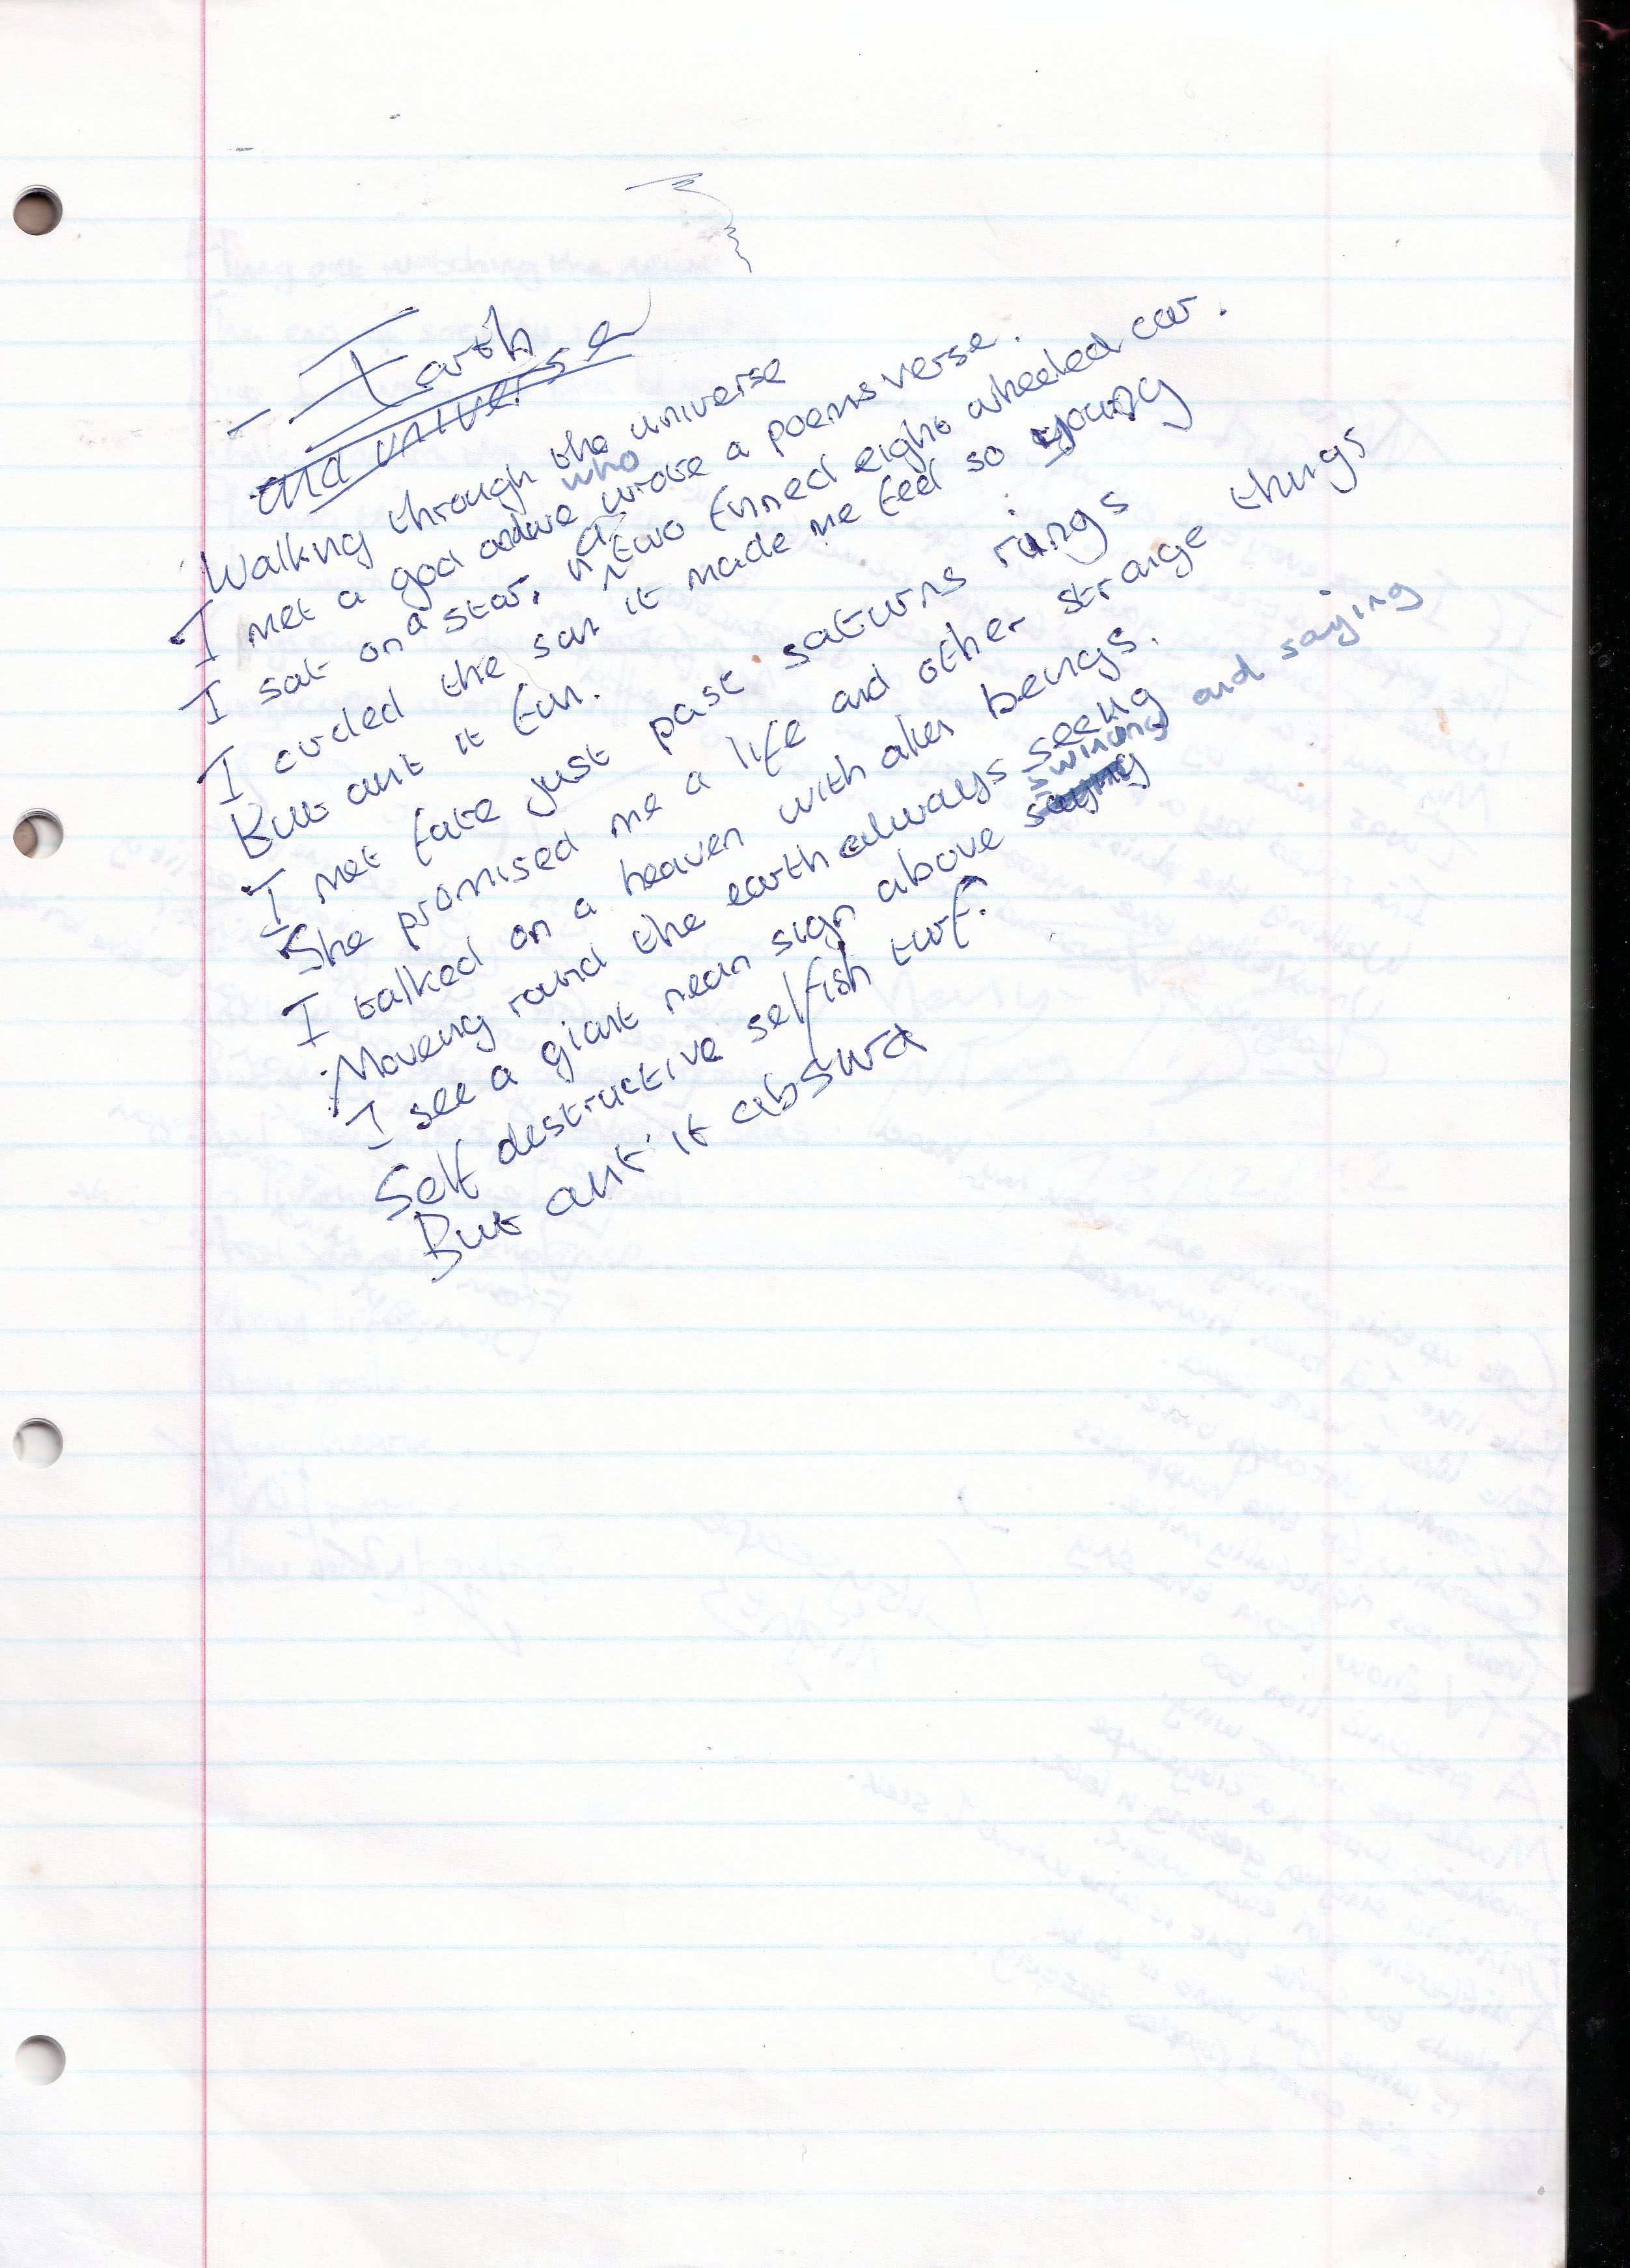 Earth
and universe
Walking through the universe
I met a god who wrote a poems verse.
I sat on a star, n a two finned eight wheeled car.
I circled the sun it made me feel so young
But aint it fun.
I met fate just past saturns rings
She promised me a life and other strange things
I talked on a heaven with alien beings.
Moveing round the earth always seeing
I see a giant neon sign above swining and saying
Self destructive selfish turf.
But aint it absurd